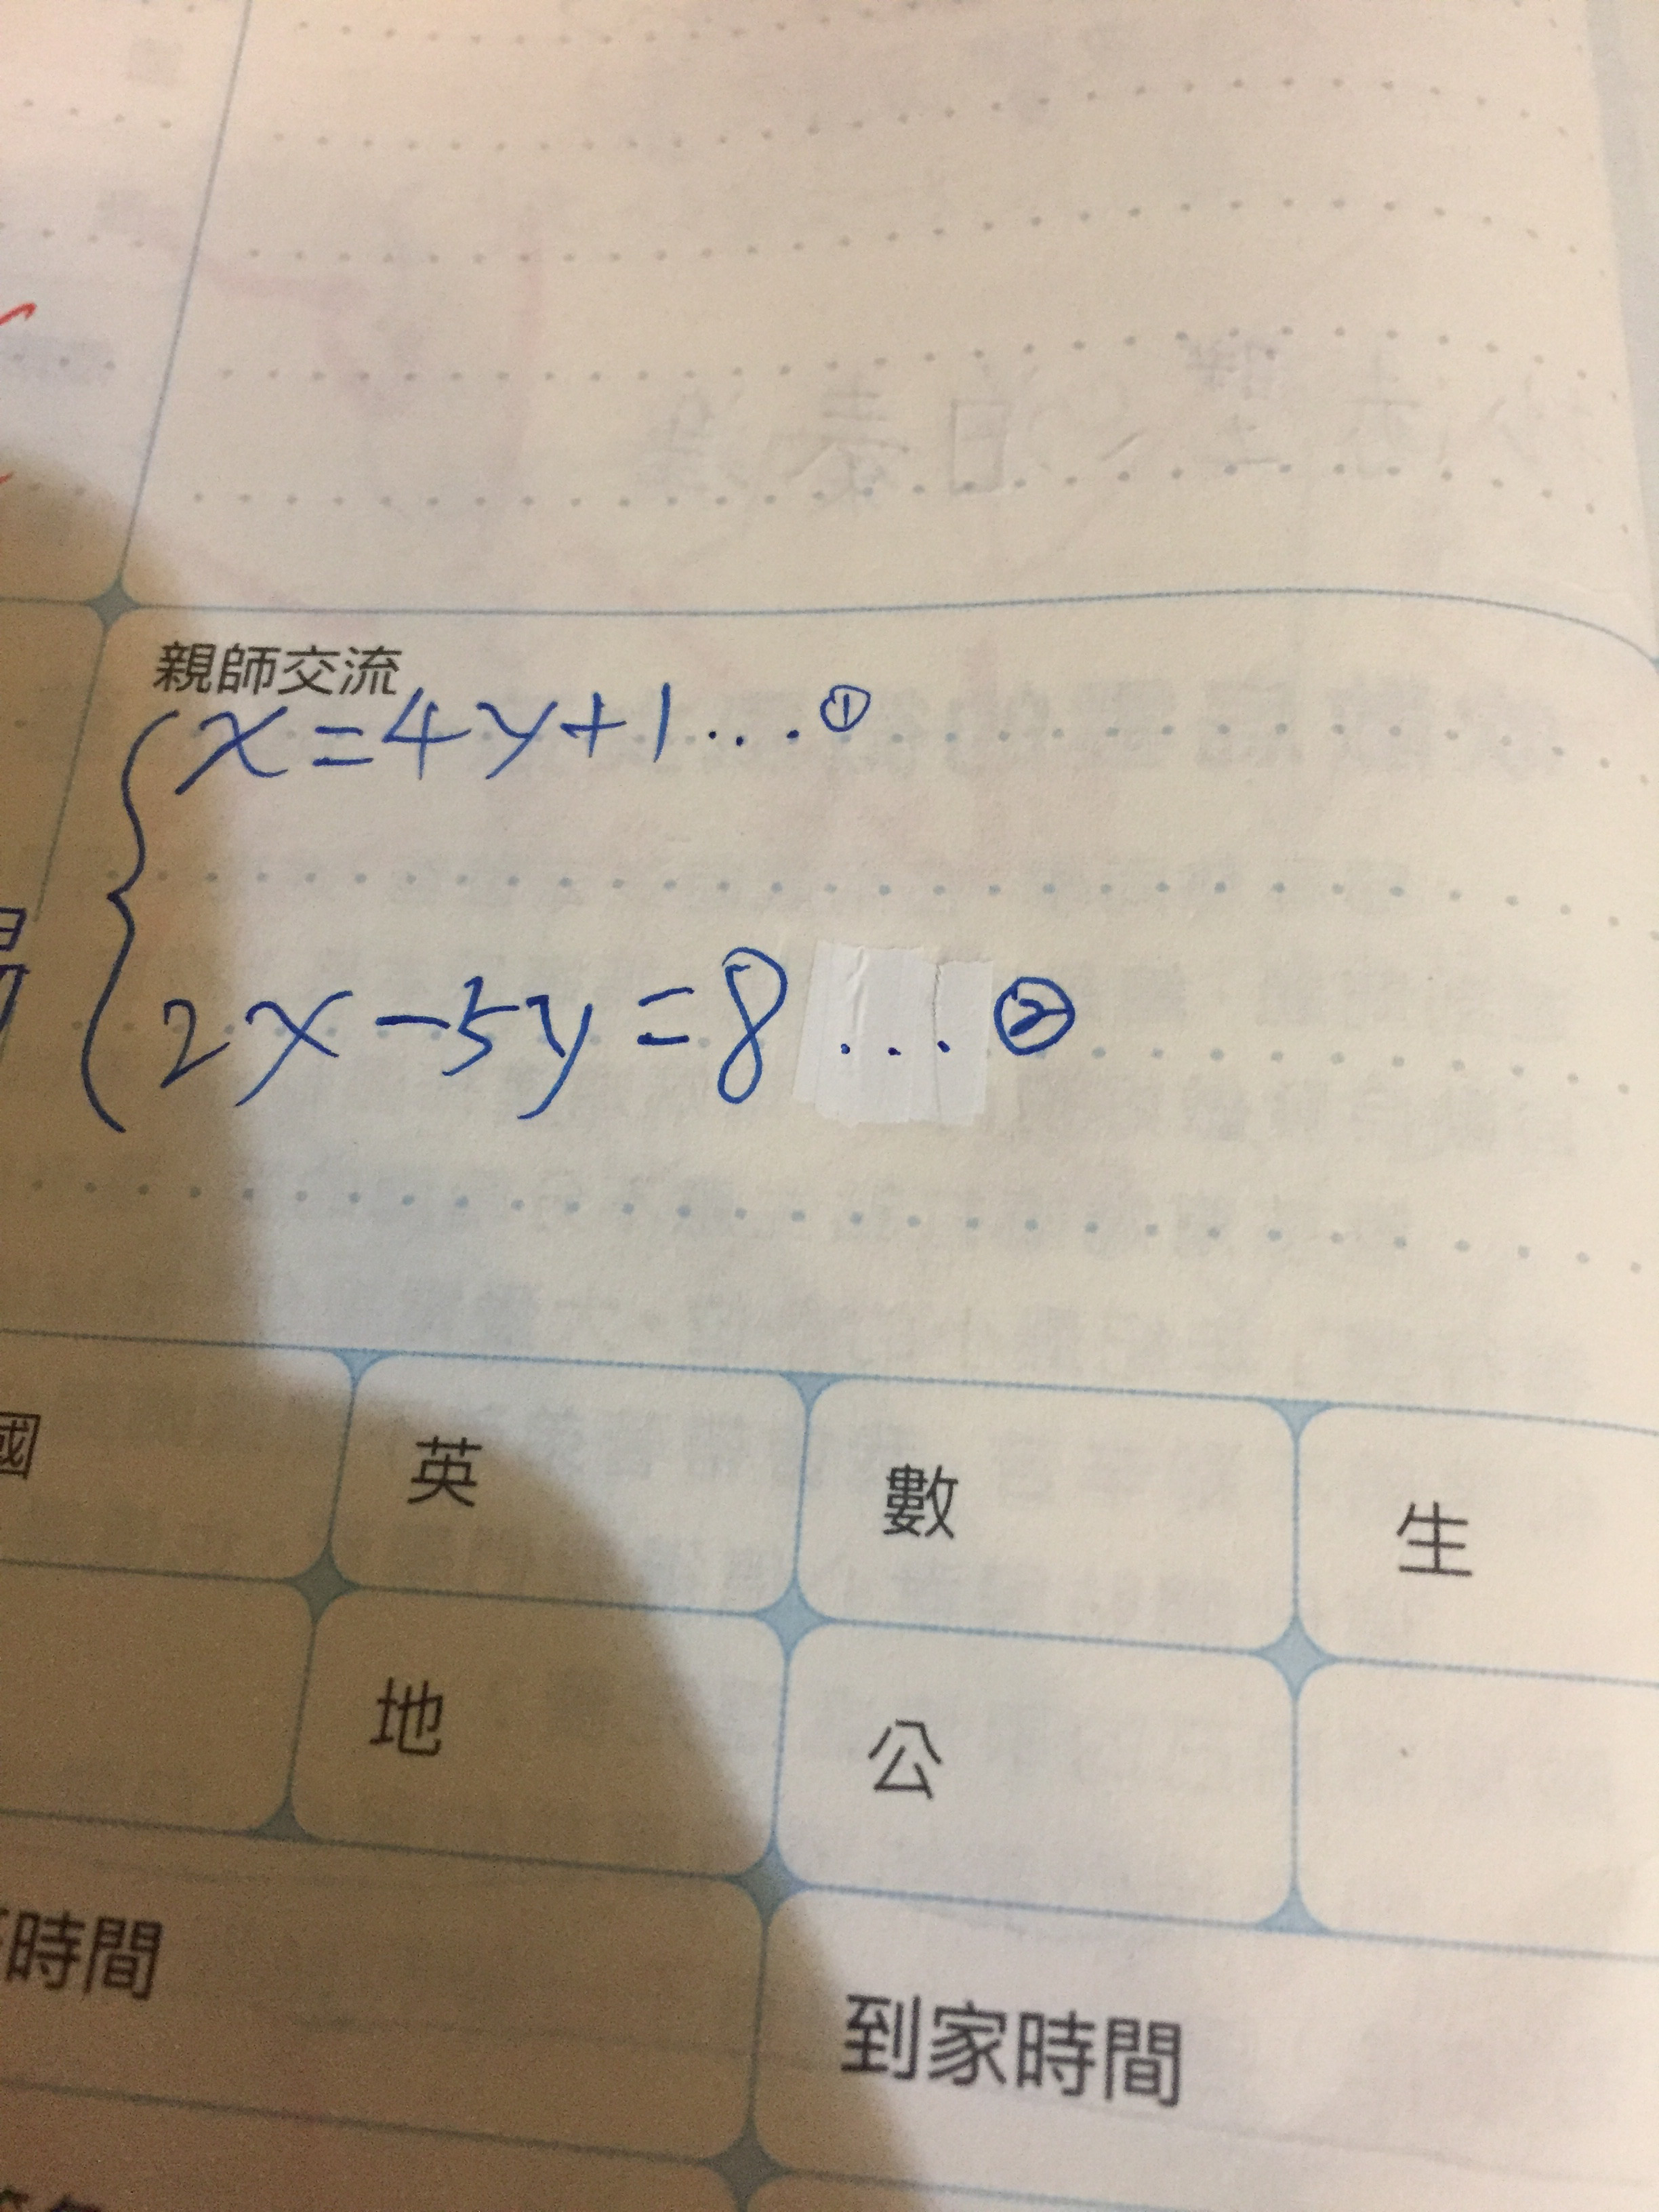 親師交流
x=4y+1...①
2x-5y=8...②
國
英
數
生
地
公
時間
到家時間